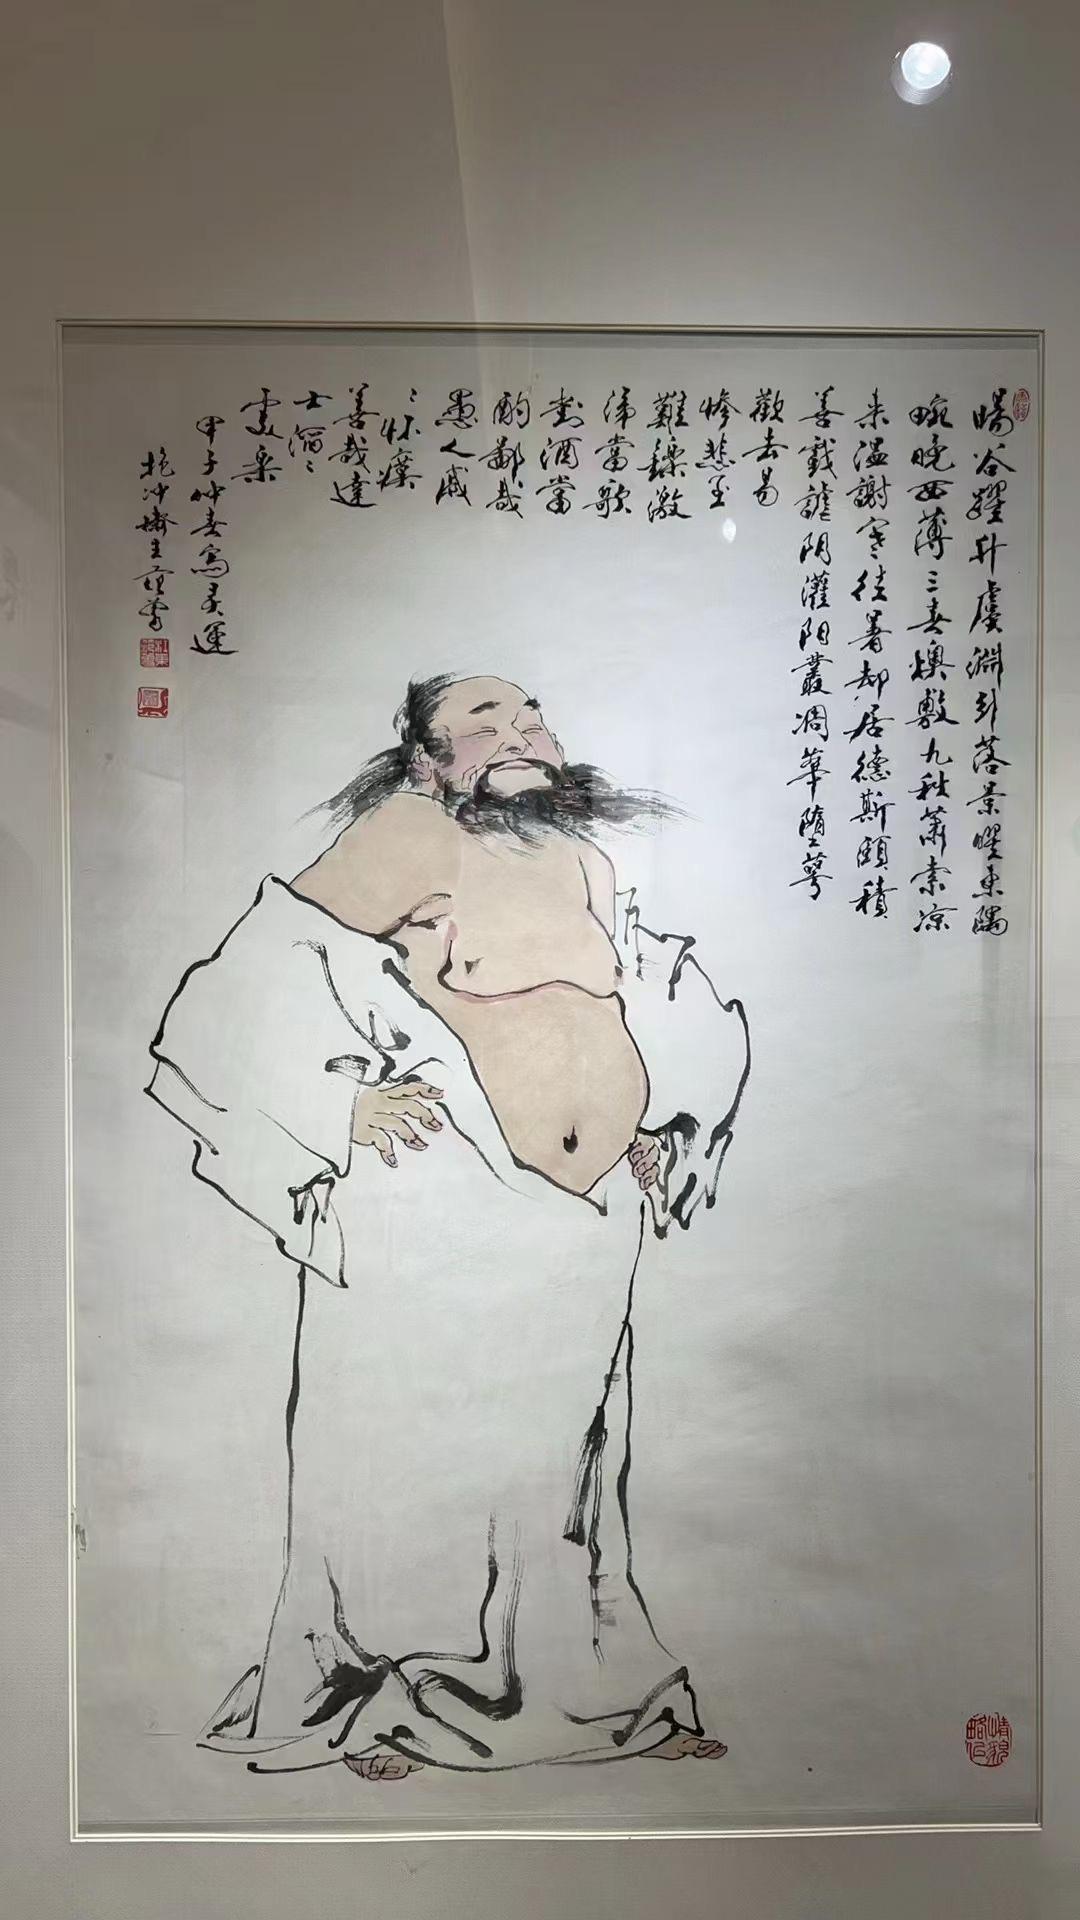 暘谷躍升虞淵引落景曜東隅
晼晚西薄三春燠敷九秋蕭索凉
来温謝寒往暑却居德斯頤積
善戲謔阴灌阳叢凋華墮萼
歡去易
惨悲至
難鑠激
涕當歌
對酒當
酌鄙哉
愚人戚
〻怀瘼
善哉達
士滔〻
處樂
甲子仲春寫灵運
抱冲齋主范曾